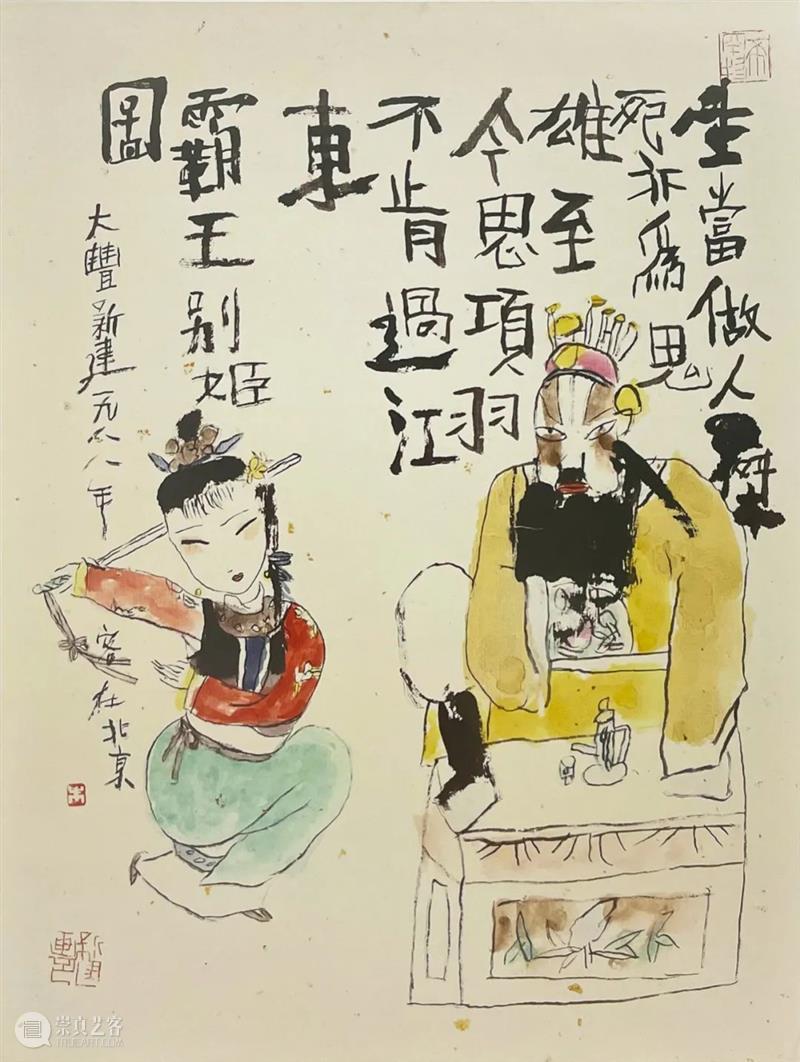 生當做人桀
死亦為鬼
雄至
今思項羽
不肯過江
東
霸王别姬
圖
大豐新建一九八八年
客在北京
崇真艺客